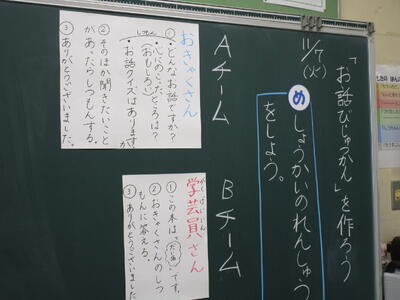 11/7(火)
「お話びじゅつかん」を作ろう
め
しょうかいのれんしゅう
をしよう。
Aチーム
おきゃくさん
しつもん
①・どんなお話ですか?
・心にのこったところは?
(おもしろい)
・お話クイズはありますか
②そのほか聞きたいこと
があったらしつもんする。
③ありがとうございました。
Bチーム
がくげいいん
学芸員さん
①この本は、(だい名)です。
②おきゃくさんのしつ
もんに答える。
③ありがとうございました